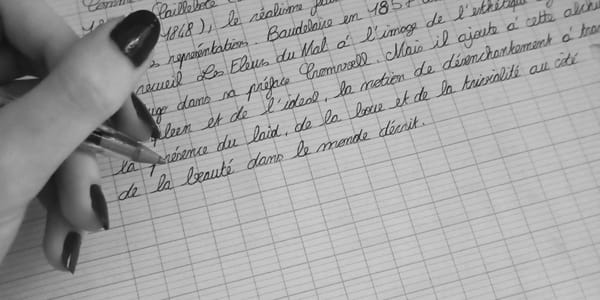 Caillebotte
1848), le réalisme
représentation. Baudelaire en 1857
recueil Les Fleurs du Mal à l'image de l'esthétique
dans sa préface Cromwell. Mais il ajoute à cette
et de l'idéal, la notion de désenchantement à
la présence du laid, de la boue et de la trivialité au côté
de la beauté dans le monde décrit.